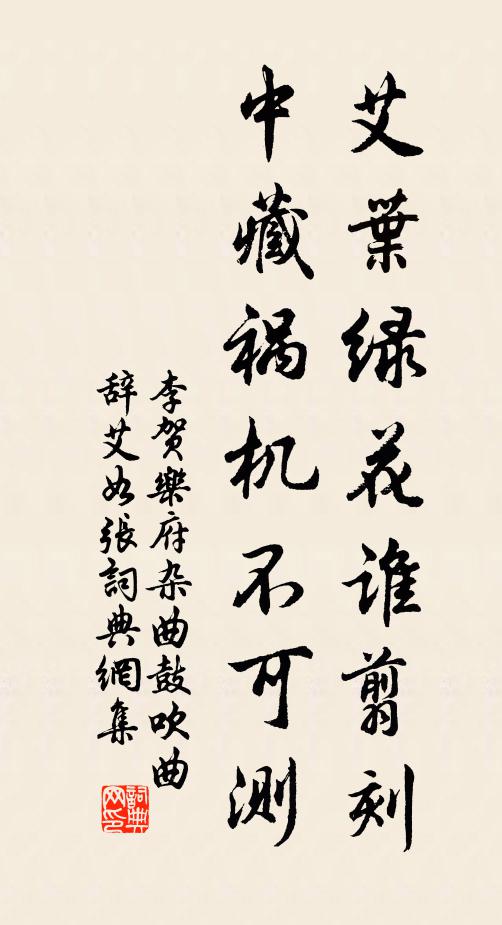 艾葉绿花谁剪刻
中藏祸机不可测
李贺樂府杂曲鼓吹曲
辞艾如张詞典網集
詞典网印